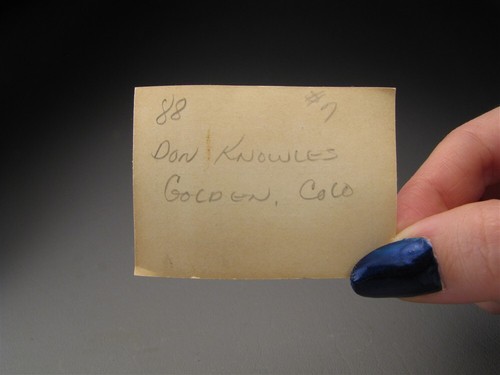 88 #7
DON KNOWLES
GOLDEN, COLO